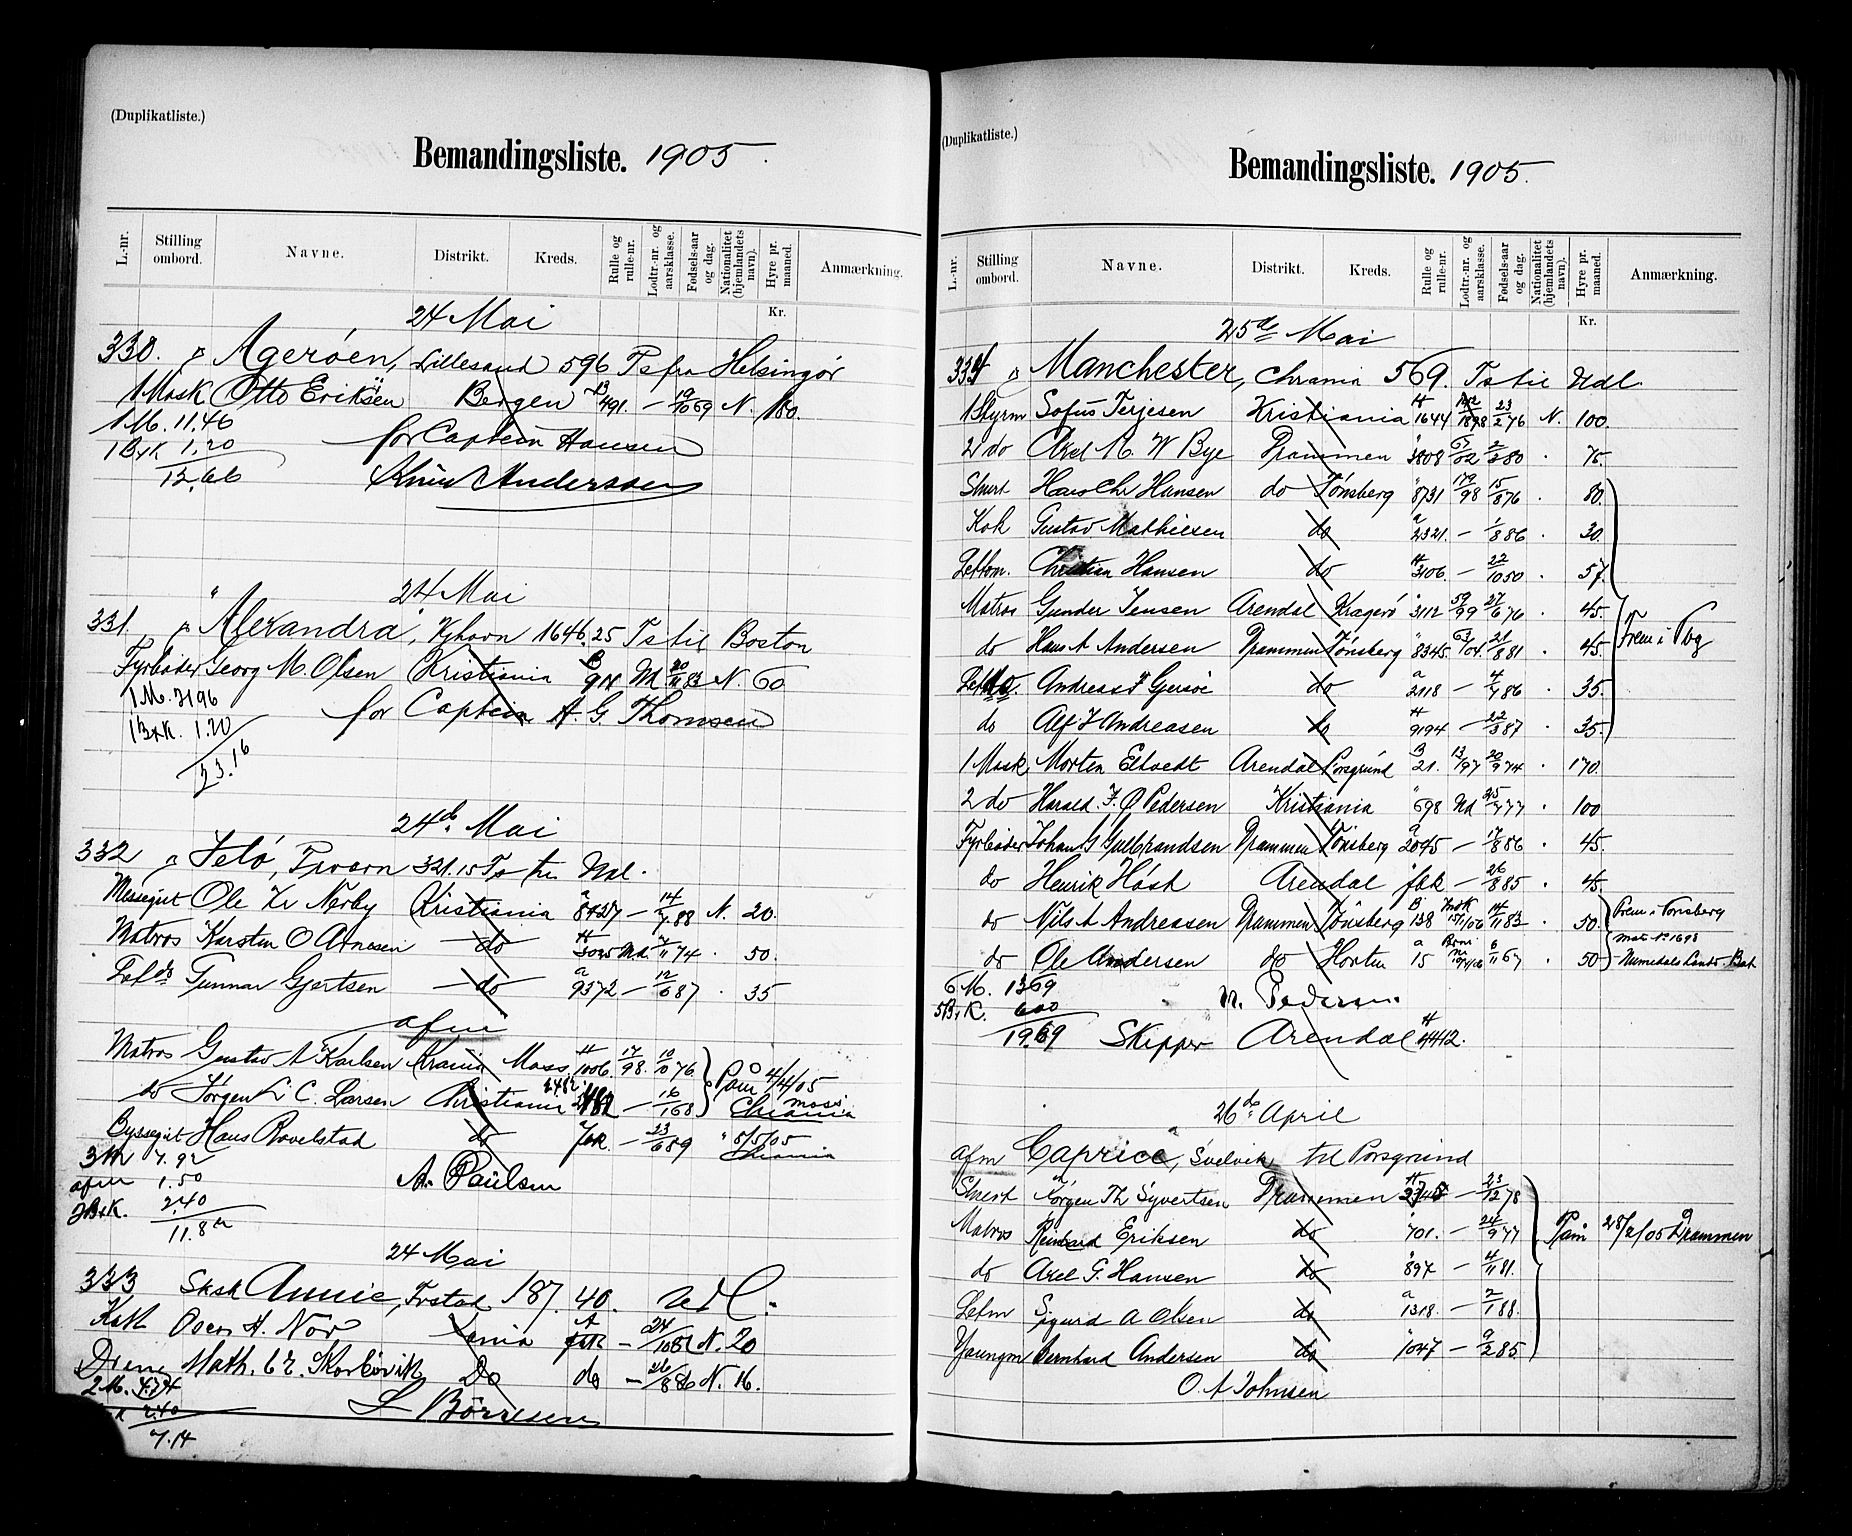 (Duplikatliste.)
Bemandingsliste. 1905.
L.-nr. Stilling ombord. Navne. Distrikt. Kreds. Rulle og rulle-nr. Lodtr.-nr. og aarsklasse. Fødsels-aar og dag. Nationalitet (hjemlandets navn). Hyre pr. maaned. Anmærkning.
Kr.
24 Mai
330. Agerøen, Lillesand 596 Ts fra Helsingør
1 Mask Otto Eriksen Bergen 491. — 19/10 69 N. 180.
1 M. 11.46 for Captein Hansen
1 B & K 1.20 Knut Andersen
12.66
24 Mai
331. Alexandra, Kjhavn 1646.25 Ts til Boston
Fyrbøder Georg M. Olsen Kristiania B 914 Md 20/11 83 N. 60
1 M. 2196 for Captein A. G. Thomsen
1 B & K. 1.20
23.16
24 de Mai
332 Jelö, Tpsorn 321.15 Ts til Udl.
Messegut Ole Kr Nærby Kristiania a 8427 — 14/7 88 N. 20.
Matros Karsten O Arnesen — do 3025 Md. 7/11 74 . 50.
Letm do Gunnar Gjertsen — do a 9372 — 12/6 87 . 35
afm
Matros Gustav A Karlsen Krania Moss H 1006. 17/98. 10/10 76. Paam 4/4/05
do Jørgen L C. Larsen Christiania 2482 — 16/1 68 Moss Chrania
Byssegut Hans Bovelstad do fak. — 23/6 89 " 5/5/05 Chrania
3 M 7.92
afm 1.50 A. Paulsen
2 B & K. 2.40
11.82
24 Mai
333 Sksk Annie, Frstad 187.40. Udl.
Kok Oscar H. Nor Kania A fak — 24/10 82 N. 20
Dreng Math. Chr. Skorbövik Do do — 26/8 86 N. 16.
2 M. 4.74 L Börresen
2.40
7.14
(Duplikatliste.)
Bemandingsliste. 1905.
L.-nr. Stilling ombord. Navne. Distrikt. Kreds. Rulle og rulle-nr. Lodtr.-nr. og aarsklasse. Fødsels-aar og dag. Nationalitet (hjemlandets navn). Hyre pr. maaned. Anmærkning.
Kr.
25 de Mai
334 Manchester, Chrania 569. Ts til Udl.
1 Styrm Sofus Terjesen Kristiania H 1644 1898 23/2 76 N. 100.
2 do Axel M. W Bye Drammen " 3808 67/02 2/2 80 . 75.
Stuert Hans Chr Hansen do Tønsberg " 8731 179/98 15/8 76 . 80.
Kok Gustav Mathiesen do a 2321. — 1/8 86 . 30.
Letton. Christian Hansen do H 3106. — 22/10 50 . 57.
Matros Gunder Jensen Arendal Kragerø " 3112 59/99 27/6 76 . 45. Frem i Tbg
do Hans A Andersen Drammen Tønsberg " 8345. 63/04. 21/8 81 . 45.
Let do Andreas F Gjersøe do a 2118 — 4/7 86 . 35.
do Alf J Andreasen do H 9194 — 22/3 87 . 35.
1 Mask Morten Eltvedt Arendal Porsgrund B 21. 13/97 20/9 74 . 170.
2 do Harald. F. Ø Pedersen Kristiania " 698 Md 25/7 77 . 100
Fyrbøder Johan G Gulbrandsen Drammen Tönsberg a 2095 — 17/8 86 . 45.
do Henrik Höst Arendal " fak — 26/8 85 . 45.
do Nils A Andreasen Drammen Tönsberg B 138 14/11 83 . 50. Frem i Tønsberg
do Ole Andersen do Horten a 15 6/11 67 . 50 Numedals Lands. Bat
6 M. 1369 N. Pedersen
5 B & K. 600
19.69 Skipper Arendal H 4412.
26 de April
afm Caprice, Svelvik til Porsgrund
Stuert Jörgen Th Syvertsen Drammen H 2745 — 23/12 78
Matros Reinhard Eriksen do " 701. — 24/9 77 Paam 28/2/05 Drammen
do Axel G. Hansen do " 897 — 4/11 81.
Letm Sigurd A Olsen do a 1318. — 2/1 88.
Youngm Bernhard Andersen do " 1047 — 9/2 85.
O. A Johnsen